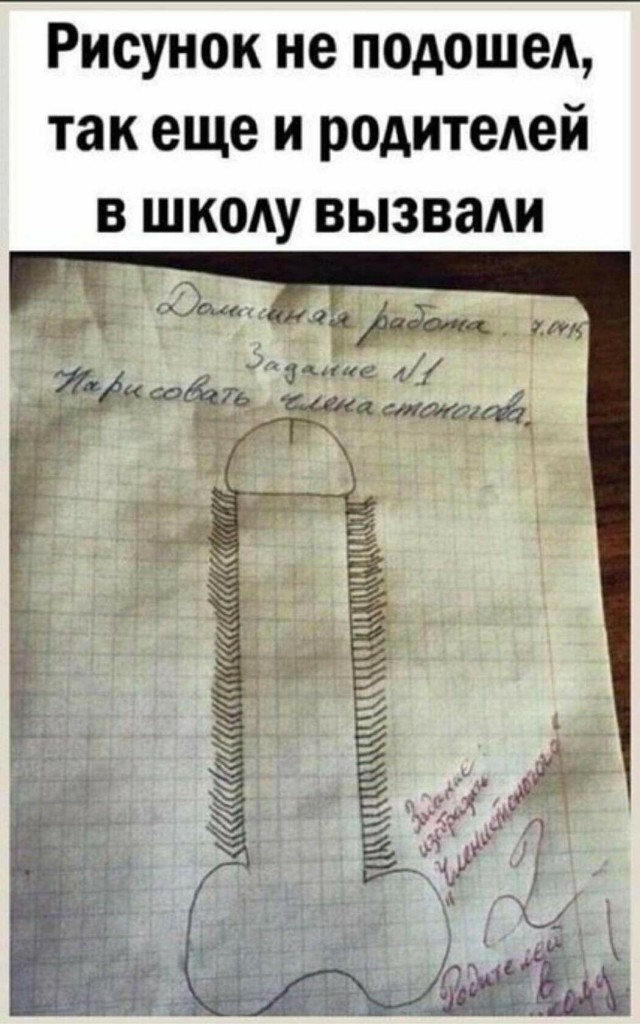 Рисунок не подошел,
так еще и родителей
в школу вызвали
Домашняя работа. 7.04.15
Задание №1
Нарисовать члена стоногова.
Задание:
изобразить
"Членистоногого"
2
Родителей
в
школу!